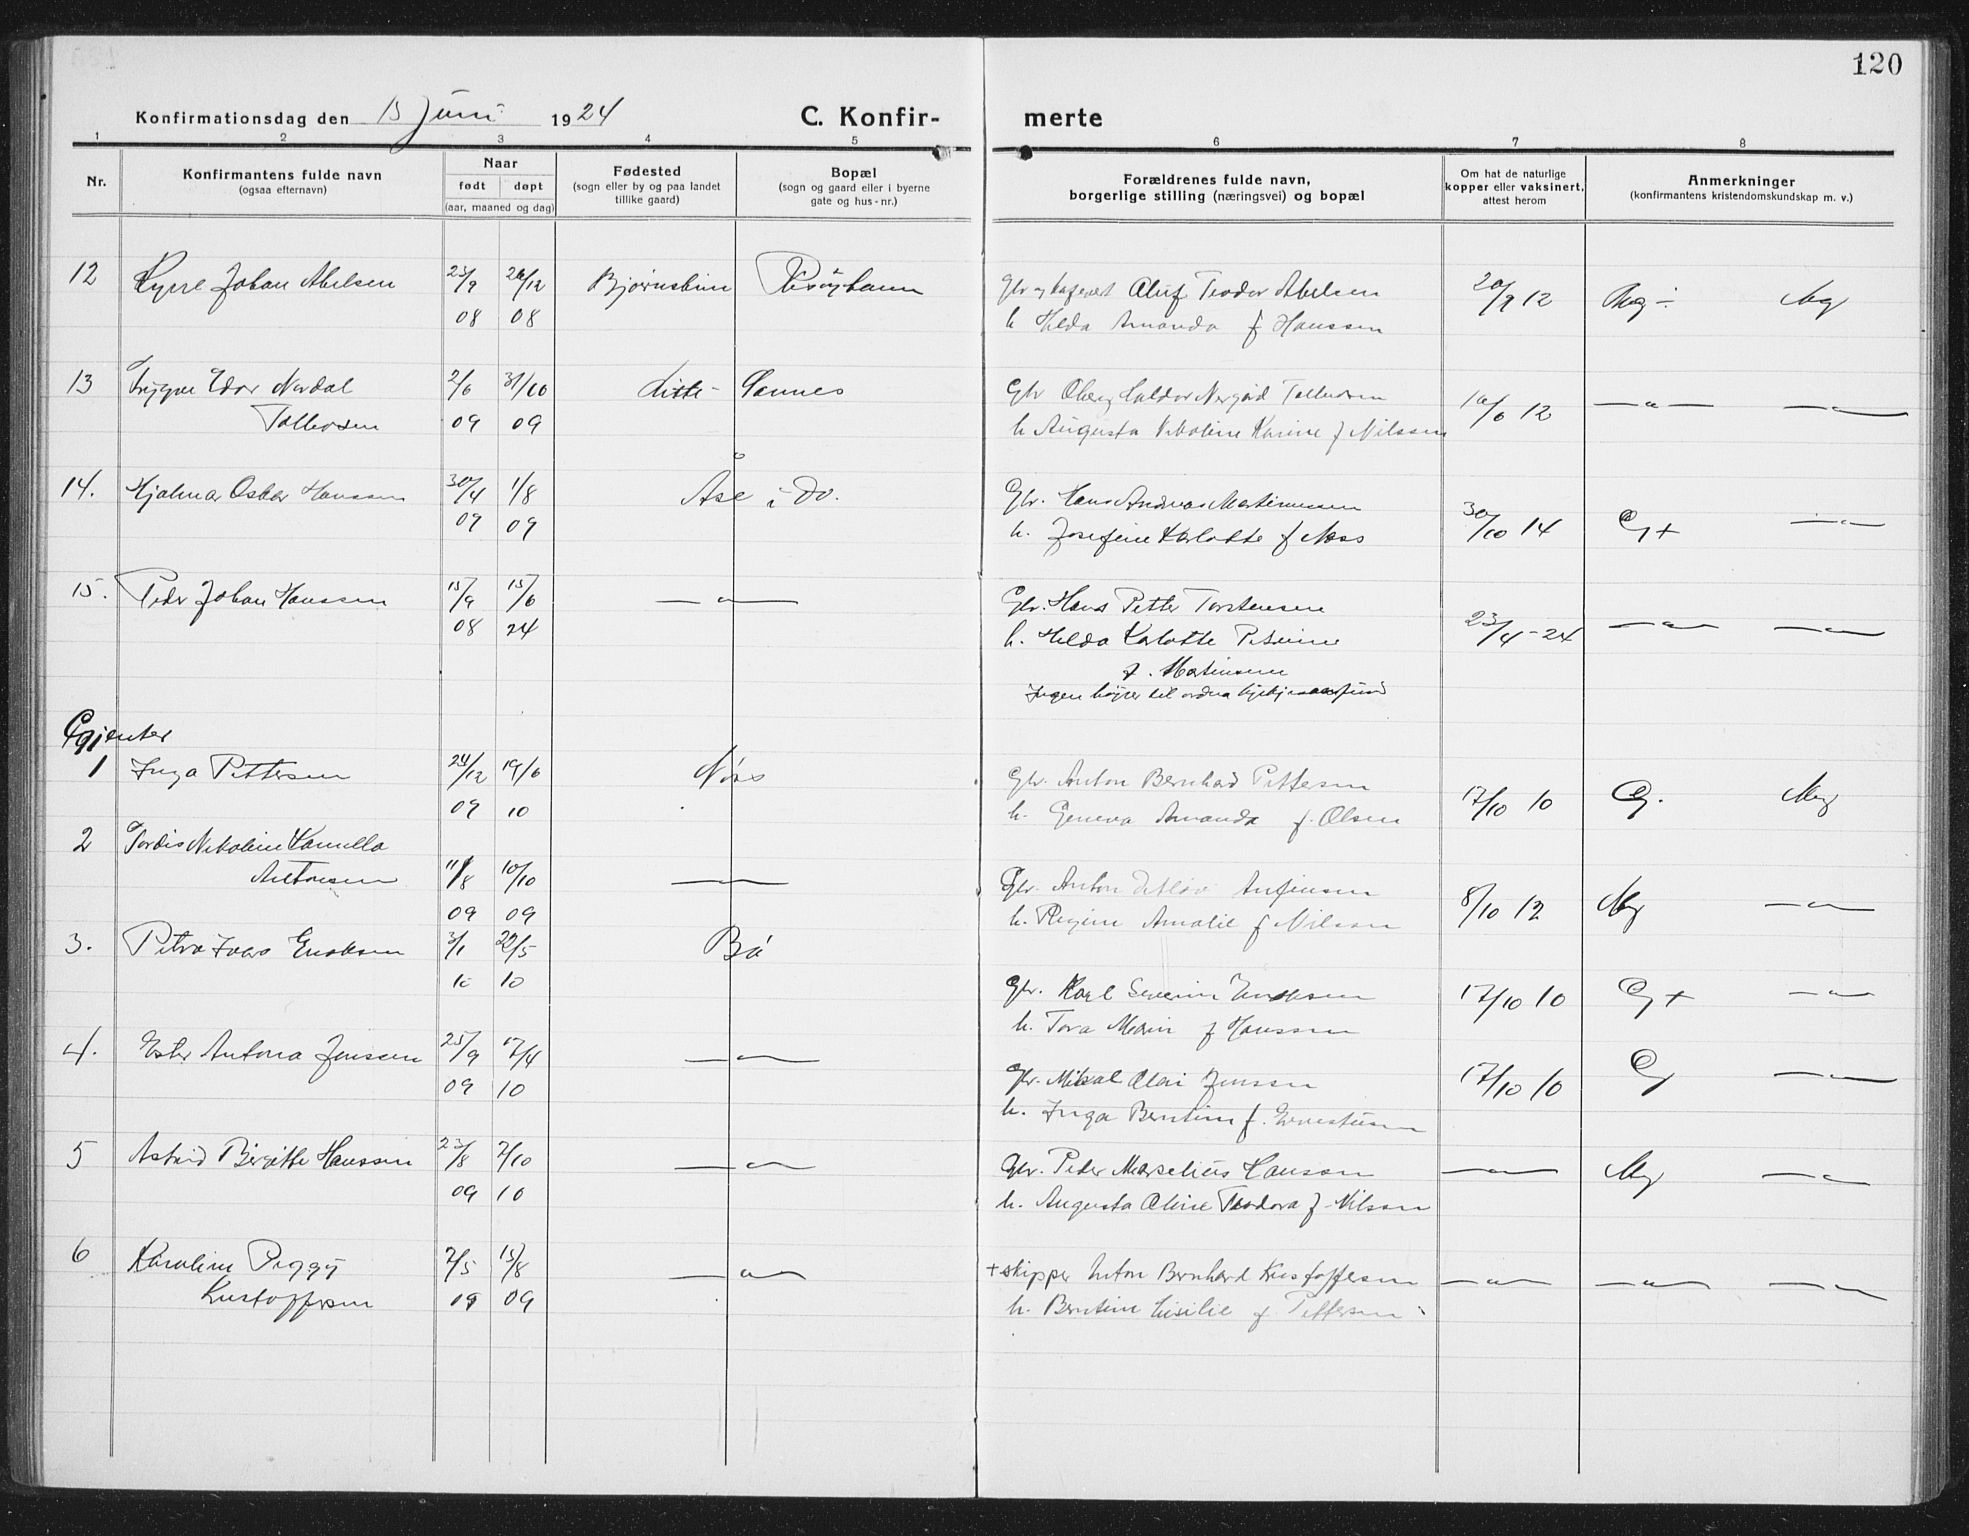 120
Konfirmationsdag den 15 Juni 1924
C. Konfirmerte
1 2 3 4 5 6 7 8
Nr.
Konfirmantens fulde navn
(ogsaa efternavn)
Naar
født døpt
(aar, maaned og dag)
Fødested
(sogn eller by og paa landet
tillike gaard)
Bopæl
(sogn og gaard eller i byerne
gate og hus-nr.)
Forældrenes fulde navn,
borgerlige stilling (næringsvei) og bopæl
Om hat de naturlige
kopper eller vaksinert,
attest herom
Anmerkninger
(konfirmantens kristendomskundskap m. v.)
12 Johan Abelsen 23/9 26/12 Risøyhamn Oluf Teodor Abelsen 20/9 12 Mg ÷ Mg
08 08 h Hilda Amanda f Hanssen
13 Trygve Edor Nordal 2/6 31/10 ditto Sannes Gbr
Tollefsen 09 09 h Augusta Nikoline Karine f Nilssen 16/6 12 —"— —"—
14. Hjalmar Oskar Hanssen 30/4 1/8 Åse i Do. Gbr. Hans Andreas Martinussen
09 09 h. Josefine Karlotte f Moss 30/10 14 G+ —"—
15. Peder Johan Hanssen 15/9 15/6 —"— Gbr. Hans Petter Torstensen
08 24 h. Hilda Karlotte Petrine 23/4-24 —"— —"—
f. Martinsen
Pigienter
1 Inga Pettersen 24/12 19/6 Nøss Gbr. Anton Bernhard Pettersen
09 10 h. Geneva Amanda f. Olsen 17/10 10 G. Mg
2 Tordis Nikoline Kamilla
Antonsen 11/8 10/10 —"— Gbr. Anton Detlov
09 09 h. Regine Amalie f Nilsen 8/10 12 Mg —"—
3. Petra Enoksen 3/1 22/5 Bø
10 10 Gbr. Karl Severin Enoksen 17/10 10 G+ —"—
h. Tora Marie f Hanssen
4. Ester Antona Jenssen 25/9 17/4 —"—
09 10 Gbr. Mikal Olai Jenssen 17/10 10 G —"—
h. Inga Bentine f. Ernestusen
5 Astrid Birgitte Hanssen 23/8 2/10 —"— Gbr. Peder Marselius Hanssen —"— Mg —"—
09 10 h. Augusta Oline Teodora f. Nilssen
6 Karoline Peggy 2/5 15/8 —"— + skipper Anton Bernhard Kristoffersen —"— —"— —"—
Kristoffersen 09 09 h. Berntine f Pettersen